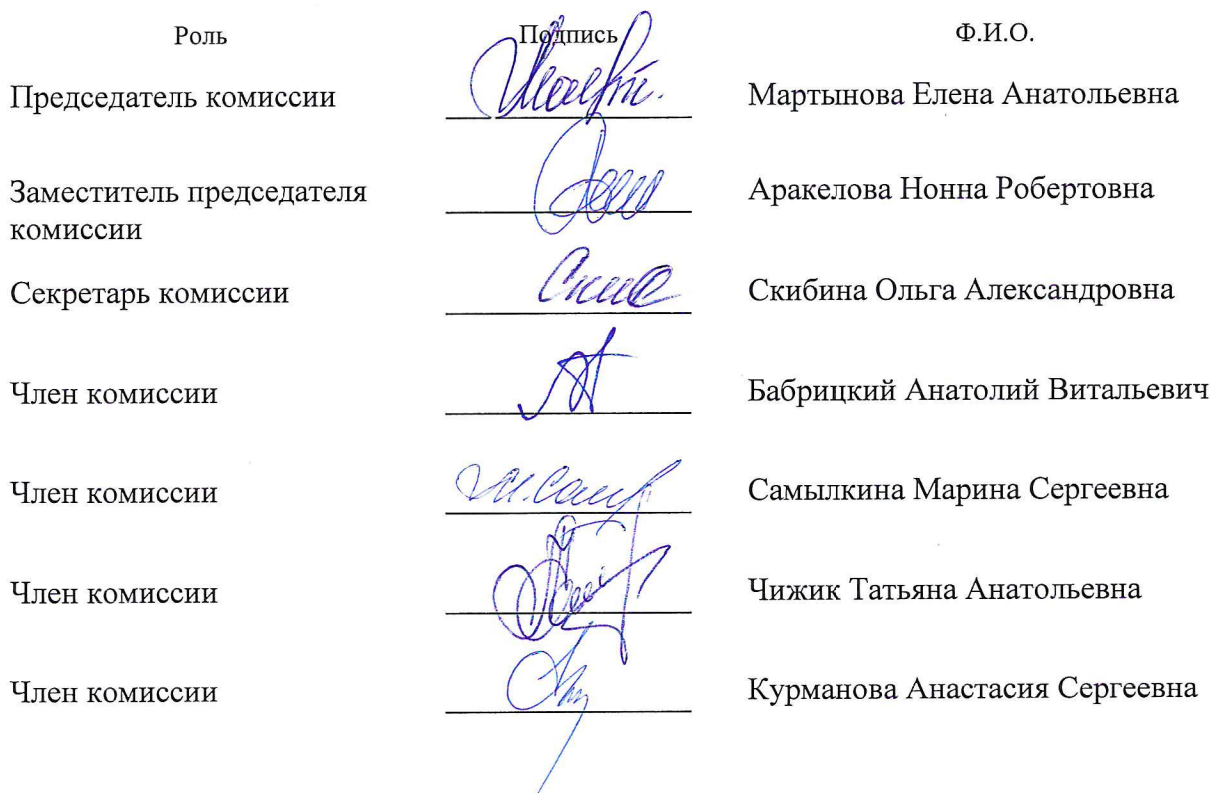 Роль Подпись Ф.И.О.
Председатель комиссии Мартынова Елена Анатольевна
Заместитель председателя Аракелова Нонна Робертовна
комиссии
Секретарь комиссии Скибина Ольга Александровна
Член комиссии Бабрицкий Анатолий Витальевич
Член комиссии Самылкина Марина Сергеевна
Член комиссии Чижик Татьяна Анатольевна
Член комиссии Курманова Анастасия Сергеевна